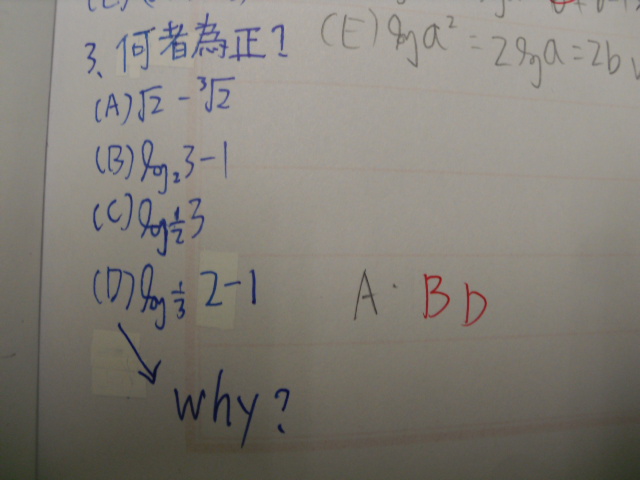 (E) log a² = 2log a = 2b
3、何者為正?
(A) √2 - ³√2
(B) log₂3-1
(C) log 1/2 3
(D) log 1/3 2-1
A. B D
why?